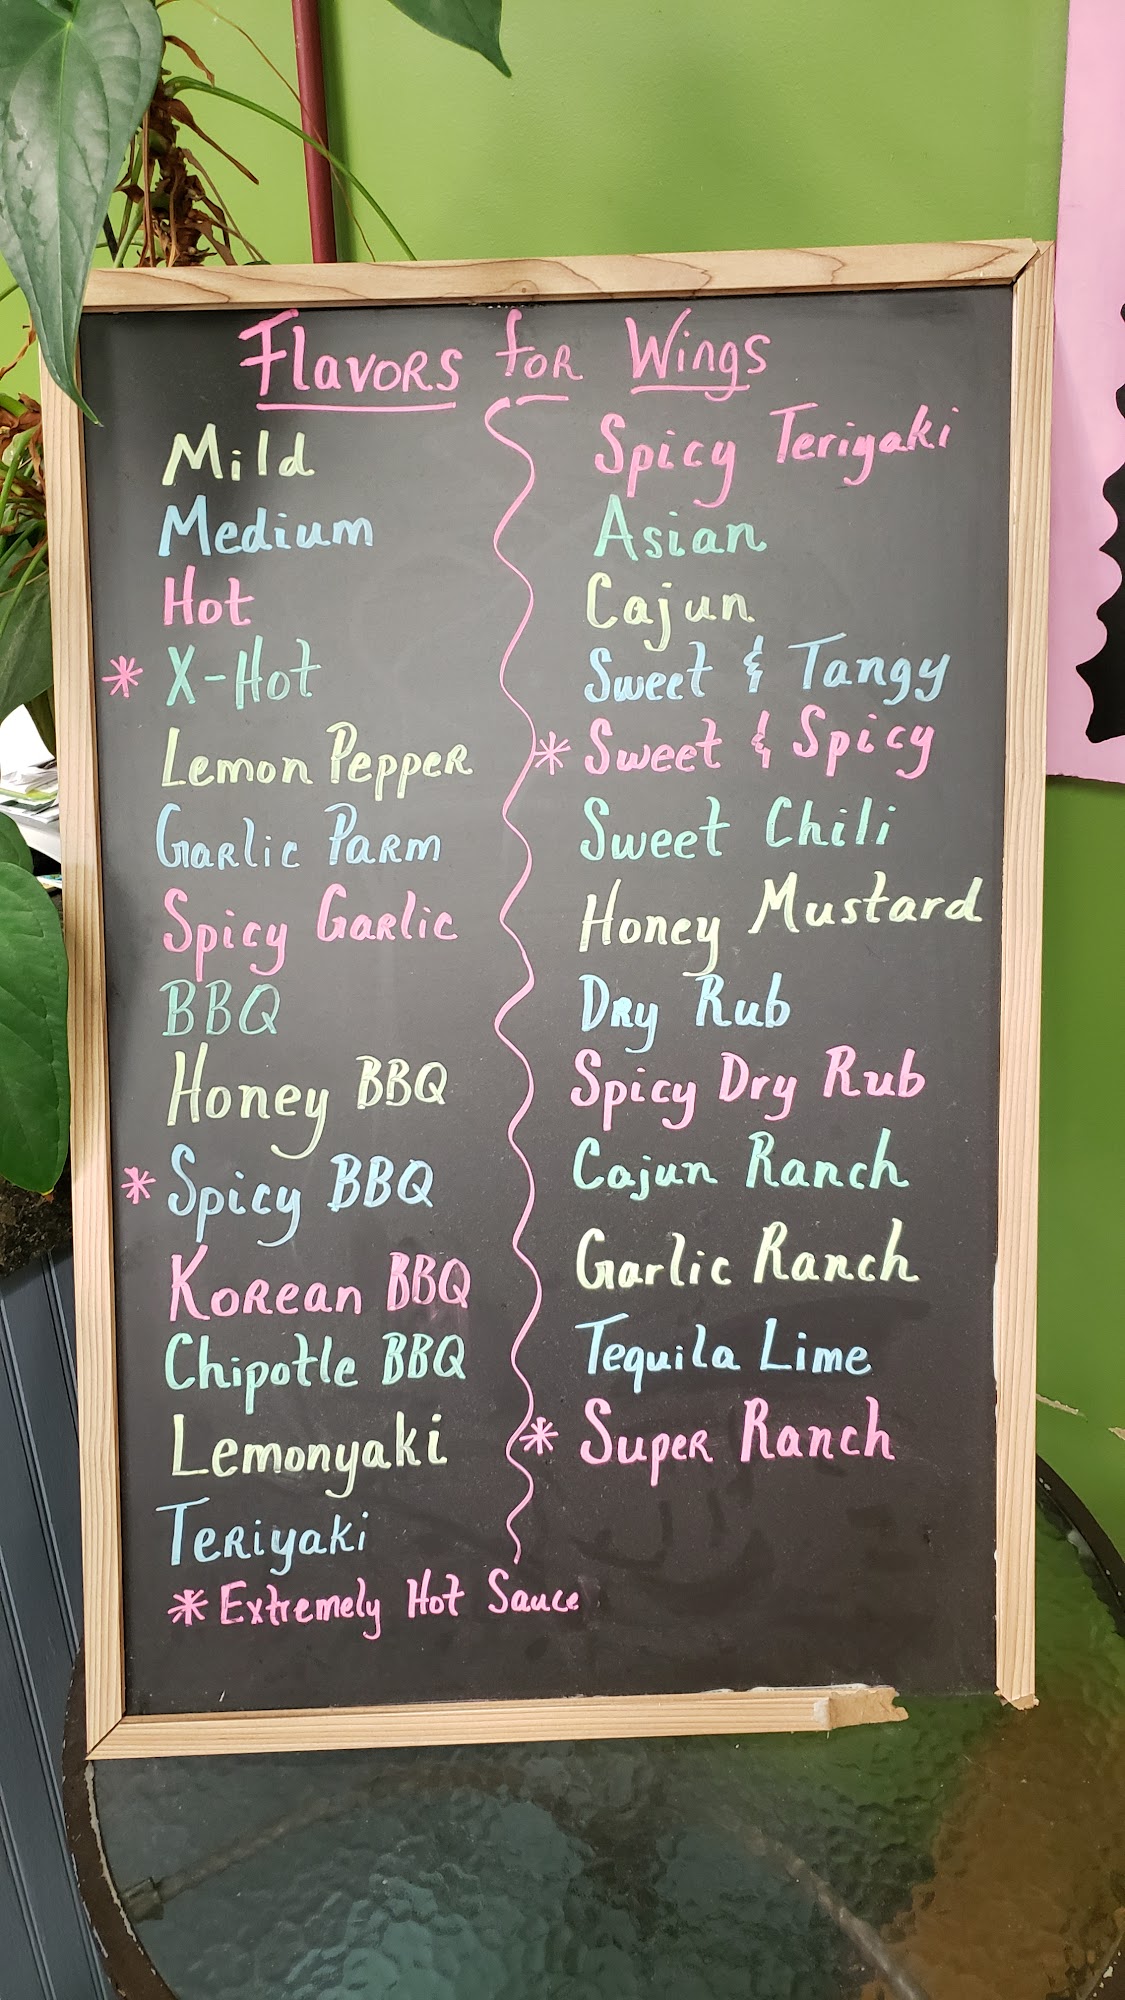 Flavors for Wings
Mild
Medium
Hot
* X-Hot
Lemon Pepper
Garlic Parm
Spicy Garlic
BBQ
Honey BBQ
* Spicy BBQ
Korean BBQ
Chipotle BBQ
Lemonyaki
Teriyaki
* Extremely Hot Sauce
Spicy Teriyaki
Asian
Cajun
Sweet & Tangy
* Sweet & Spicy
Sweet Chili
Honey Mustard
Dry Rub
Spicy Dry Rub
Cajun Ranch
Garlic Ranch
Tequila Lime
* Super Ranch